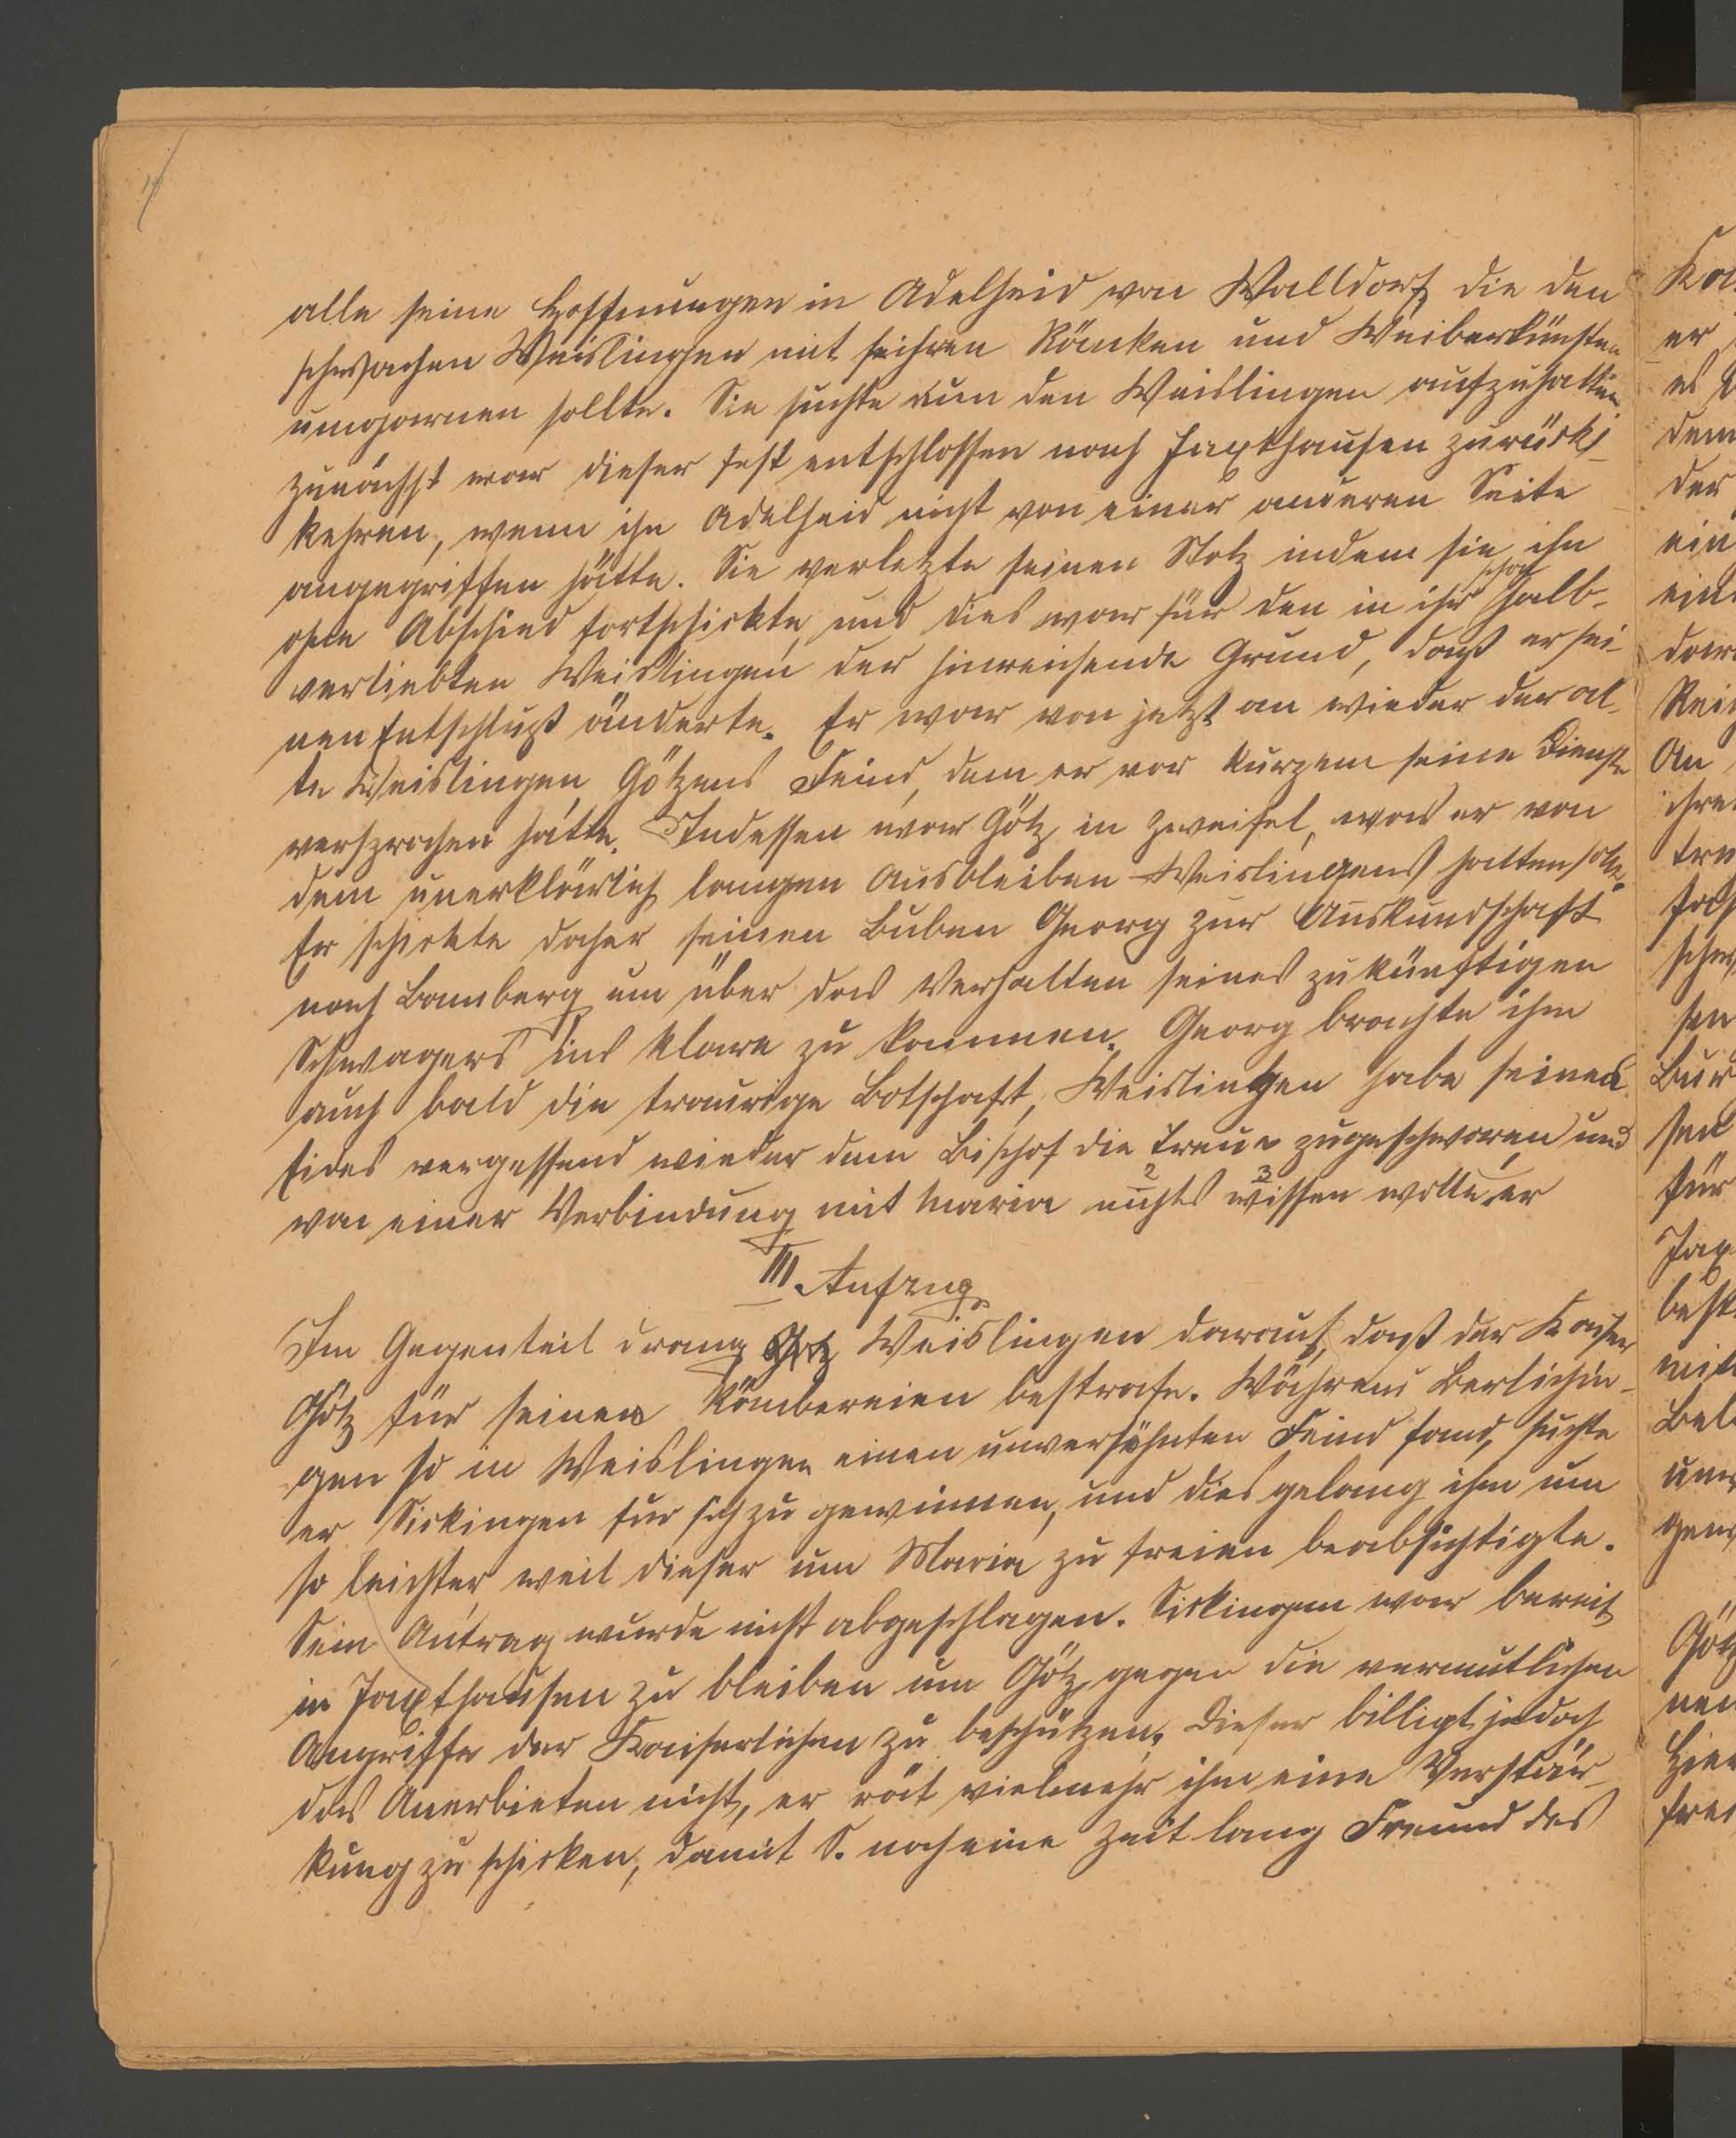 alle seine Hoffnungen in Adelheid von Walldorf, die den
schwachen Weislingen mit ihren Ränken und Weiberkünsten
umgarnen sollte. Sie suchte nun den Weislingen aufzuhalten
zunächst war dieser fest entschlossen nach Jaxthausen zurück
kehren, wenn ihn Adelheid nicht von einer anderen Seite
angegriffen hätte. Sie verletzte seinen Stolz indem sie ihn
schon
ohne Abschied fortschickte, und dies war für den in ihr halb-
verliebten Weislingen der hinreichende Grund, daß er sei-
nen Entschluß änderte. Er war von jetzt an wieder der al-
te Weislingen, Götzens Feind, dem er vor kurzem seine Dienste
versprochen hatte. Indessen war Götz in Zweifel, was er von
dem unerklärlich langen Ausbleiben Weislingens halten solle.
Er schickte daher seinen Buben Georg zur Auskundschaft
nach Bamberg um über das Verhalten seines zukünftigen
Schwagers ins Klare zu kommen. Georg brachte ihm
auch bald die traurige Botschaft, Weislingen habe seines
Eides vergessend wieder dem Bischof die Treue zugeschworen und
2 3
von einer Verbindung mit Maria nichts wissen wolle er
III. Aufzug.
Im Gegenteil drang Weislingen darauf, daß der Kaiser
Götz für seine Räubereien bestrafe. Während Berlichin-
gen so in Weislingen einen unversöhnten Feind fand, suchte
er Sickingen für sich zu gewinnen, und dies gelang ihm um
so leichter, weil dieser um Maria zu freien beabsichtigte.
Sein Antrag wurde nicht abgeschlagen. Sickingen war bereit
in Jaxthausen zu bleiben um Götz gegen die vermutlichen
Angriffe der Kaiserlichen zu beschützen. Dieser billigt jedoch
das Anerbieten nicht, er rät vielmehr ihm eine Verstär-
kung zu schicken, damit S. noch eine Zeit lang Freund des